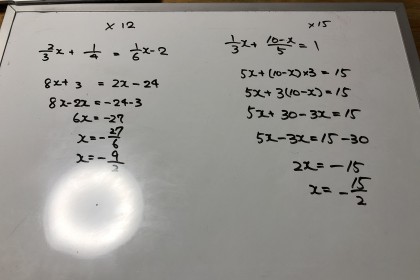 ×12
2/3x + 1/4 = 1/6x - 2
8x + 3 = 2x - 24
8x - 2x = -24 - 3
6x = -27
x = -27/6
x = -9/2
×15
1/3x + 10-x/5 = 1
5x + (10-x)×3 = 15
5x + 3(10-x) = 15
5x + 30 - 3x = 15
5x - 3x = 15 - 30
2x = -15
x = -15/2